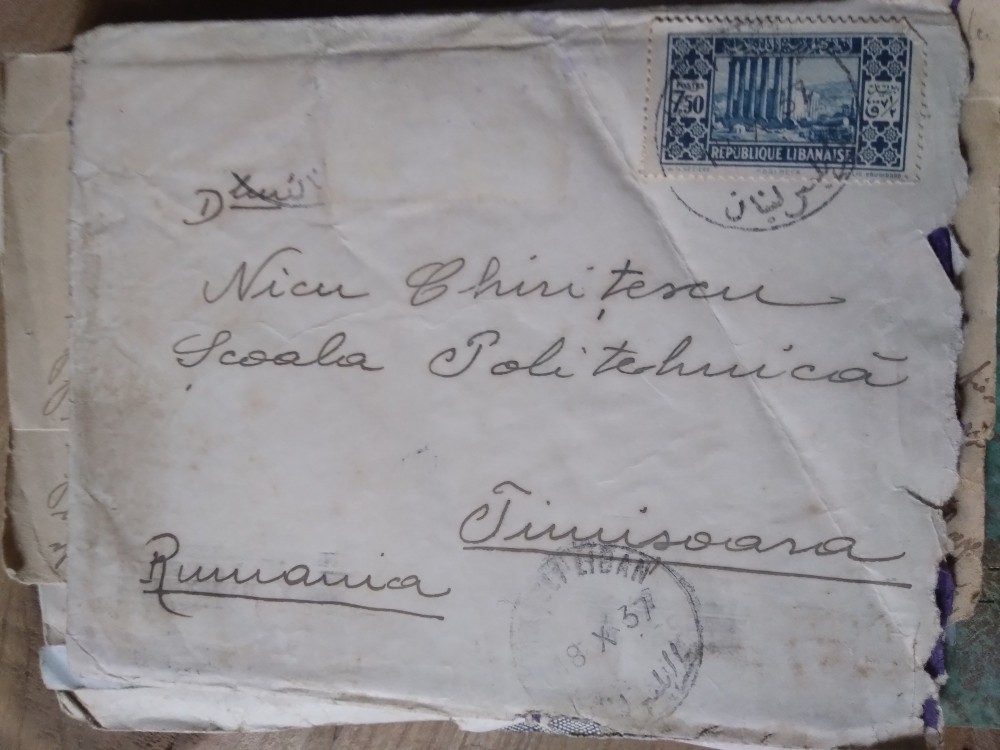 POSTES
7,50
REPUBLIQUE LIBANAISE
لبنان
D
Nicu Chirițescu
Școala Politehnică
Timisoara
Rumania
LIBAN
8 X 37